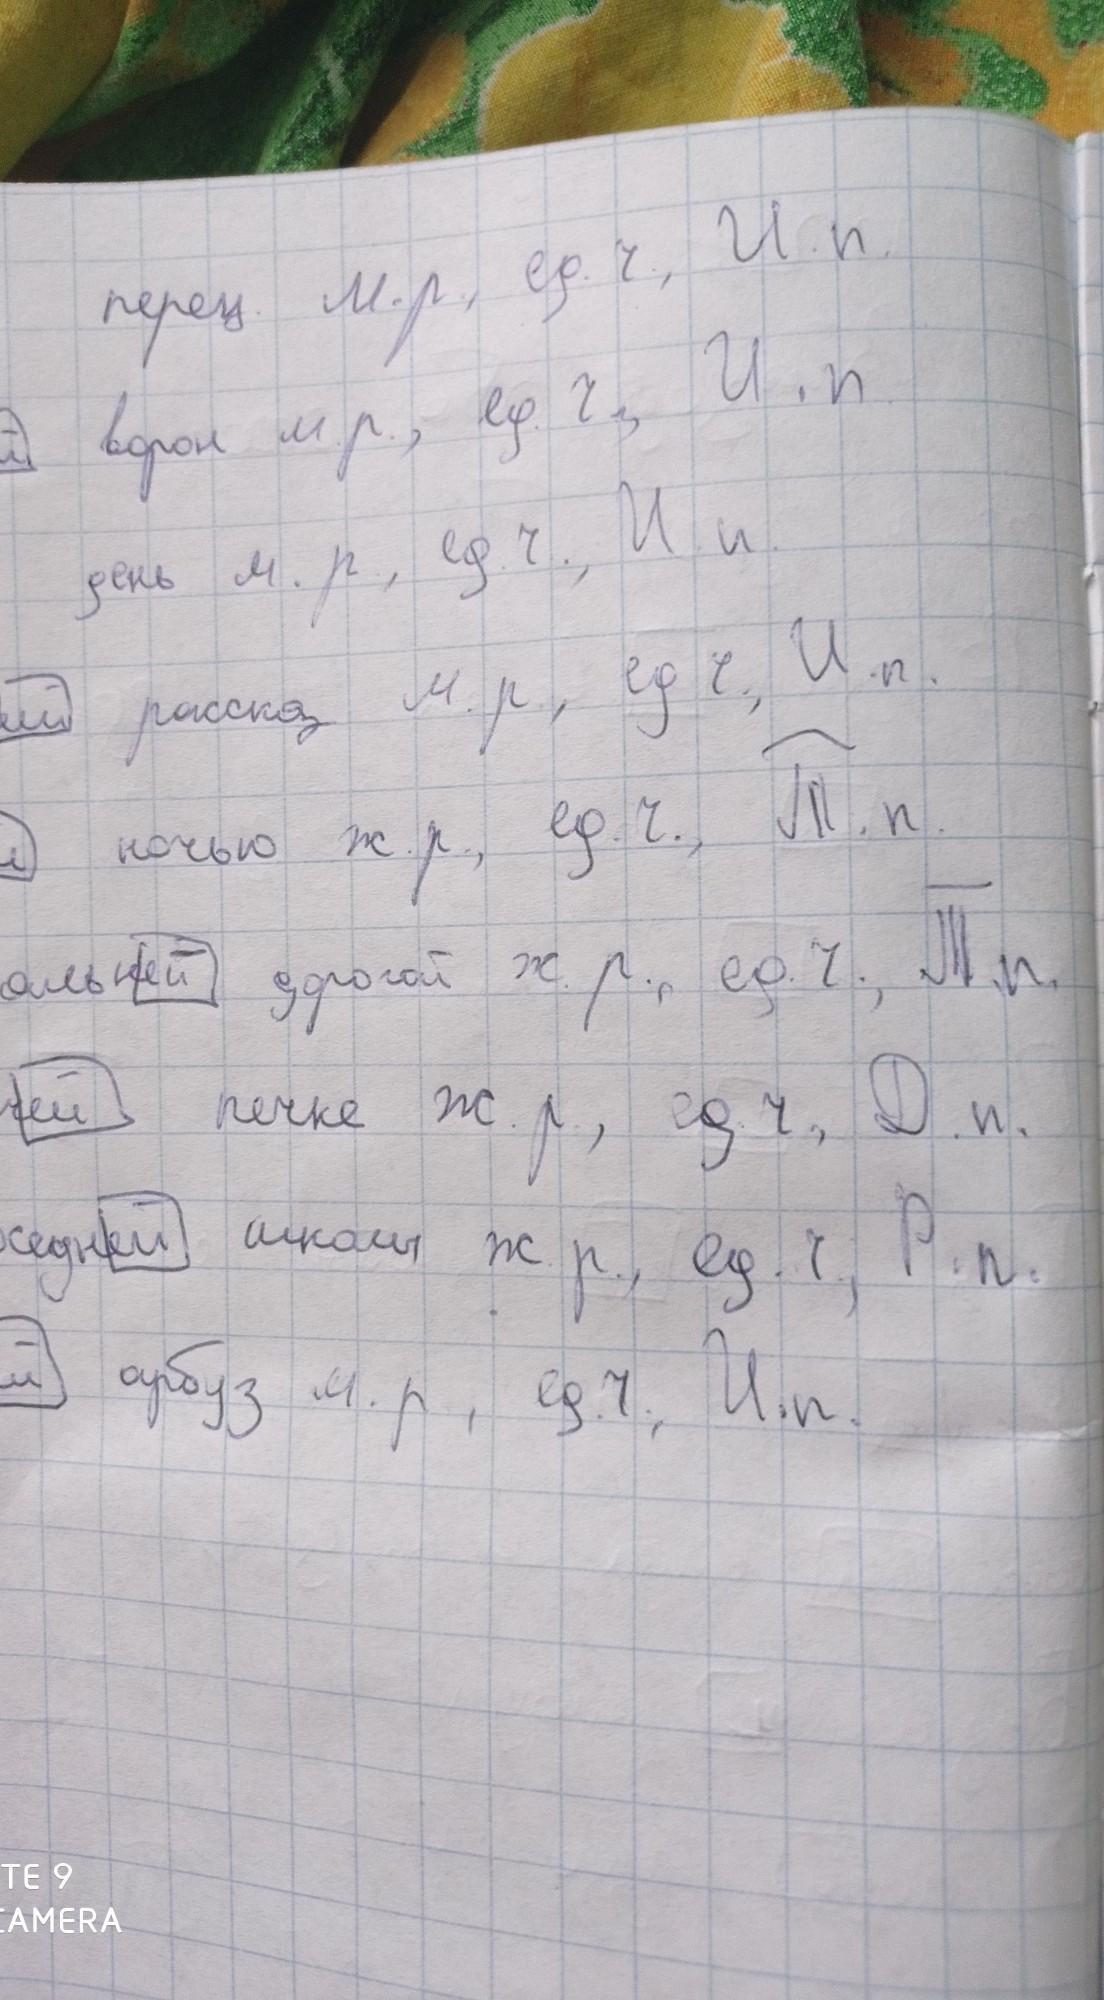 перец м.р., ед.ч., И.п.
й ворон м.р., ед.ч., И.п.
день м.р., ед.ч., И.п.
ий рассказ м.р., ед.ч., И.п.
ночью ж.р., ед.ч., Т.п.
альней дорогой ж.р., ед.ч., Т.п.
ней печке ж.р., ед.ч., Д.п.
седней школы ж.р., ед.ч., Р.п.
й арбуз м.р., ед.ч., И.п.
TE 9
CAMERA